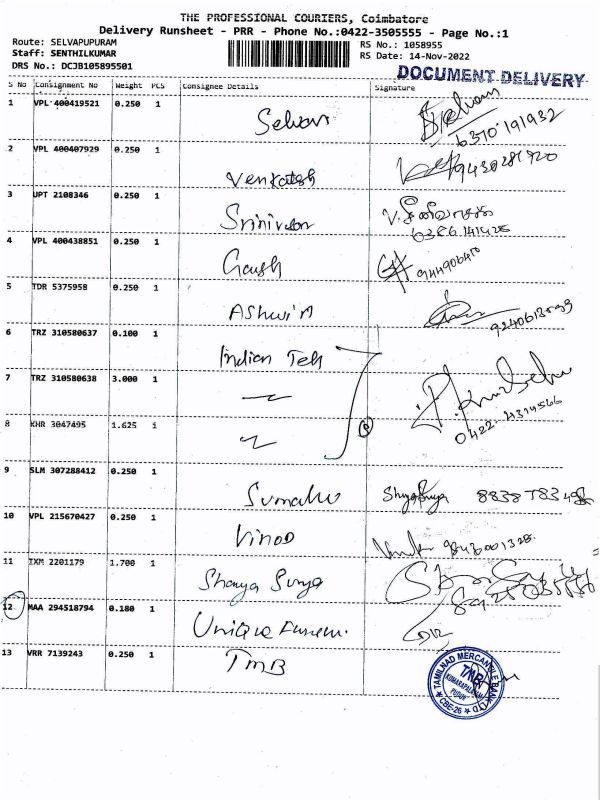 THE PROFESSIONAL COURIERS, Coimbatore
Delivery Runsheet - PRR - Phone No.:0422-3505555 - Page No.:1
Route: SELVAPUPURAM
RS No.: 1058955
Staff: SENTHILKUMAR
RS Date: 14-Nov-2022
DRS No.: DCJB105895501
DOCUMENT DELIVERY
S No Consignment No Weight PCS Consignee Details Signature
1 VPL 400419521 0.250 1 Selvam
6370191932
2 VPL 400407929 0.250 1 Venkatesh
3 UPT 2108346 0.250 1 Srinivasan
4 VPL 400438851 0.250 1
5 TDR 5375958 0.250 1 Ashwin
6 TRZ 310580637 0.100 1 Indian Teh
7 TRZ 310580638 3.000 1
8 KHR 3047495 1.625 1
0422-4314566
9 SLM 307288412 0.250 1
10 VPL 215670427 0.250 1 Vinod
9843001328
11 IXM 2201179 1.700 1 Shanya Surya
12 MAA 294518794 0.180 1 Unique
13 VRR 7139243 0.250 1 TMB
TAMILNAD MERCANTILE BANK LTD
TMB
PUDUR
CBE-26